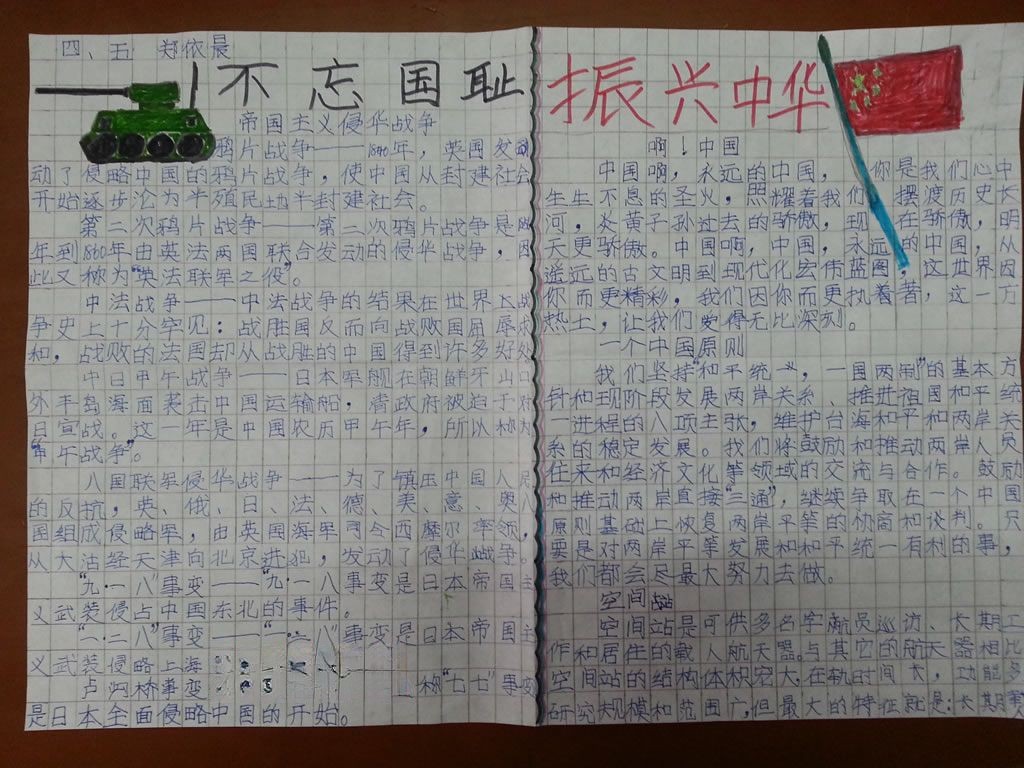 四、五 郑依晨
不忘国耻
帝国主义侵华战争
鸦片战争——1840年，英国发动
动了侵略中国的鸦片战争，使中国从封建社会
开始逐步沦为半殖民地半封建社会。
第二次鸦片战争——第二次鸦片战争是
年到1860年由英法两国联合发动的侵华战争，因
此又称为“英法联军之役”。
中法战争——中法战争的结果在世界
争史上十分罕见：战胜国反而向战败国屈辱求
和，战败的法国却从战胜的中国得到许多好处
中日甲午战争——日本军舰在朝鲜牙山口
外丰岛海面袭击中国运输船，清政府被迫于对
日宣战。这一年是中国农历甲午年，所以称为
“甲午战争”。
八国联军侵华战争——为了镇压中国人民
的反抗，英、俄、日、法、德、美、意、奥八
国组成侵略军，由英国海军司令西摩尔率领，
从大沽经天津向北京进犯，发动了侵华战争。
“九·一八”事变——“九·一八事变是日本帝国主
义武装侵占中国东北的事件。
“一·二八”事变——“一·二八”事变是日本帝国主
义武装侵略上海
卢沟桥事变·称“七七”事变
是日本全面侵略中国的开始。
振兴中华
啊！中国
中国啊，永远的中国，你是我们心中
生生不息的圣火，照耀着我们摆渡历史长
河，炎黄子孙过去的骄傲，现在骄傲，明
天更骄傲。中国啊，中国，永远的中国，从
遥远的古文明到现代化宏伟蓝图，这世界因
你而更精彩，我们因你而更执着着，这一方
热土，让我们爱得无比深刻。
一个中国原则
我们坚持“和平统一，一国两制”的基本方
针和现阶段发展两岸关系、推进祖国和平统
一进程的八项主张，维护台海和平和两岸关
系的稳定发展。我们将鼓励和推动两岸人员
往来和经济文化等领域的交流与合作。鼓励
和推动两岸直接“三通”，继续争取在一个中国
原则基础上恢复两岸平等的协商和谈判。只
要是对两岸平等发展和和平统一有利的事，
我们都会尽最大努力去做。
空间站
空间站是可供多名宇航员巡访、长期工
作和居住的载人航天器。与其它的航天器相比
空间站的结构体积宏大，在轨时间长，功能多
研究规模和范围广，但最大的特征就是：长期